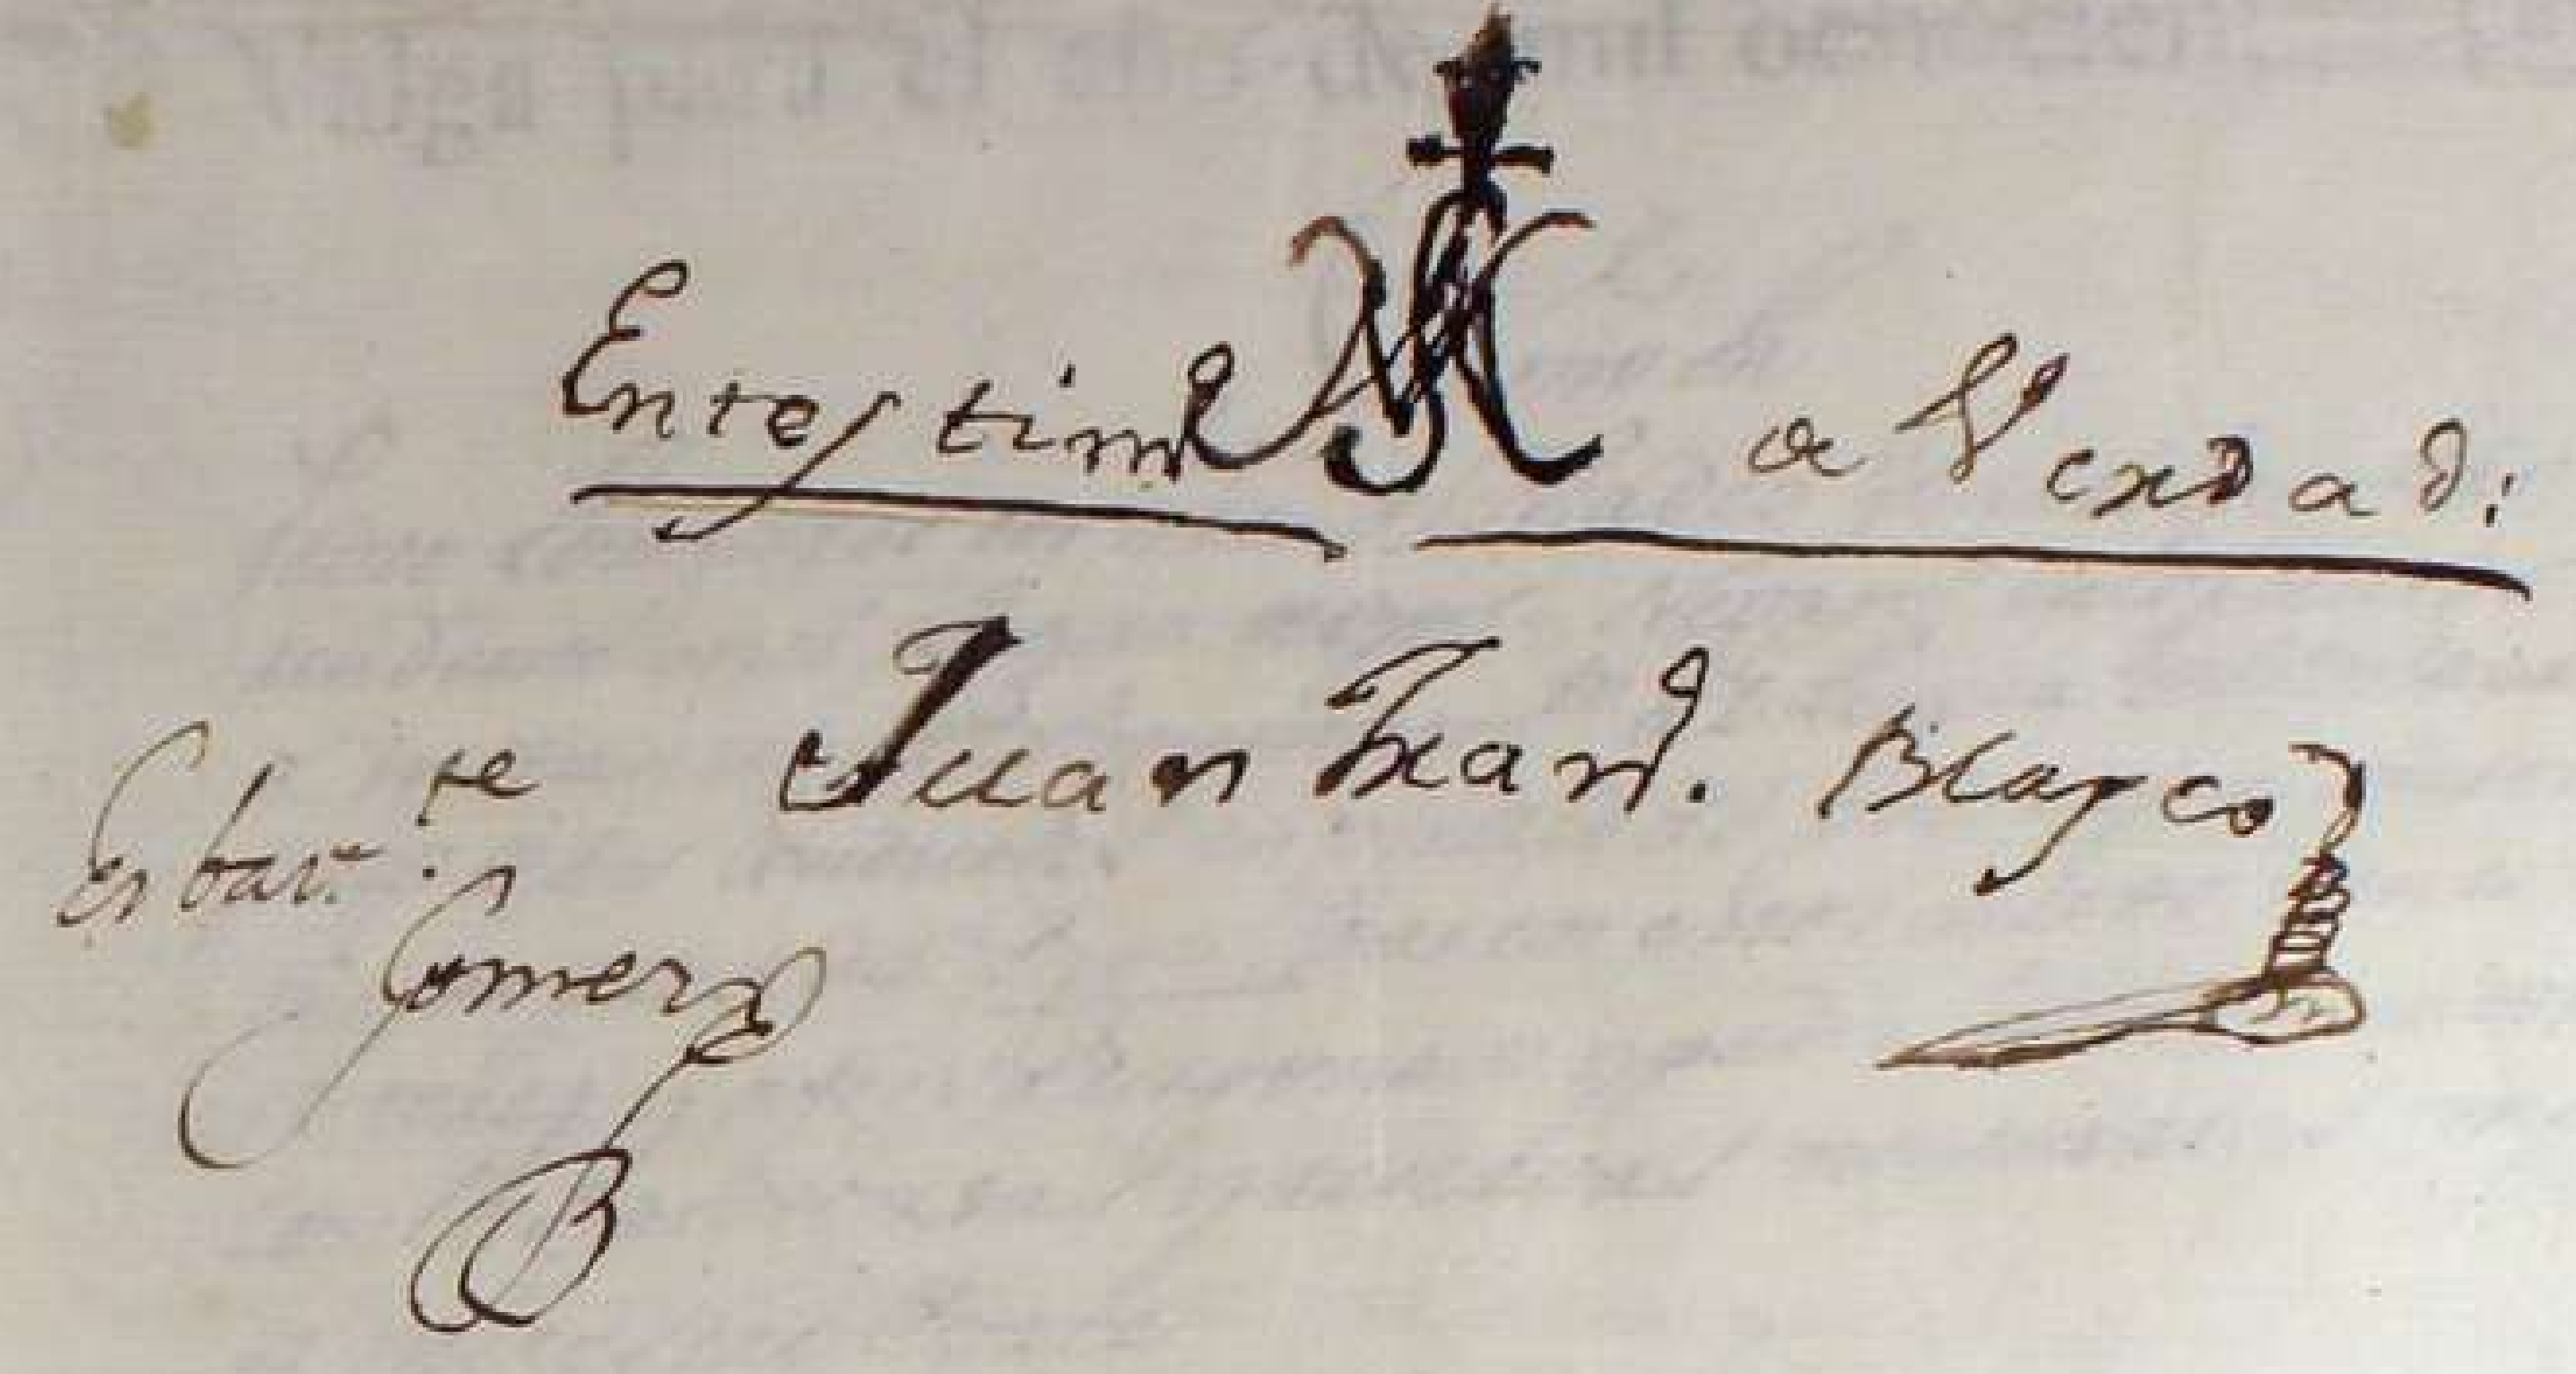 En testimº de Verdad:
Juan Franº. Blasco
Gomez